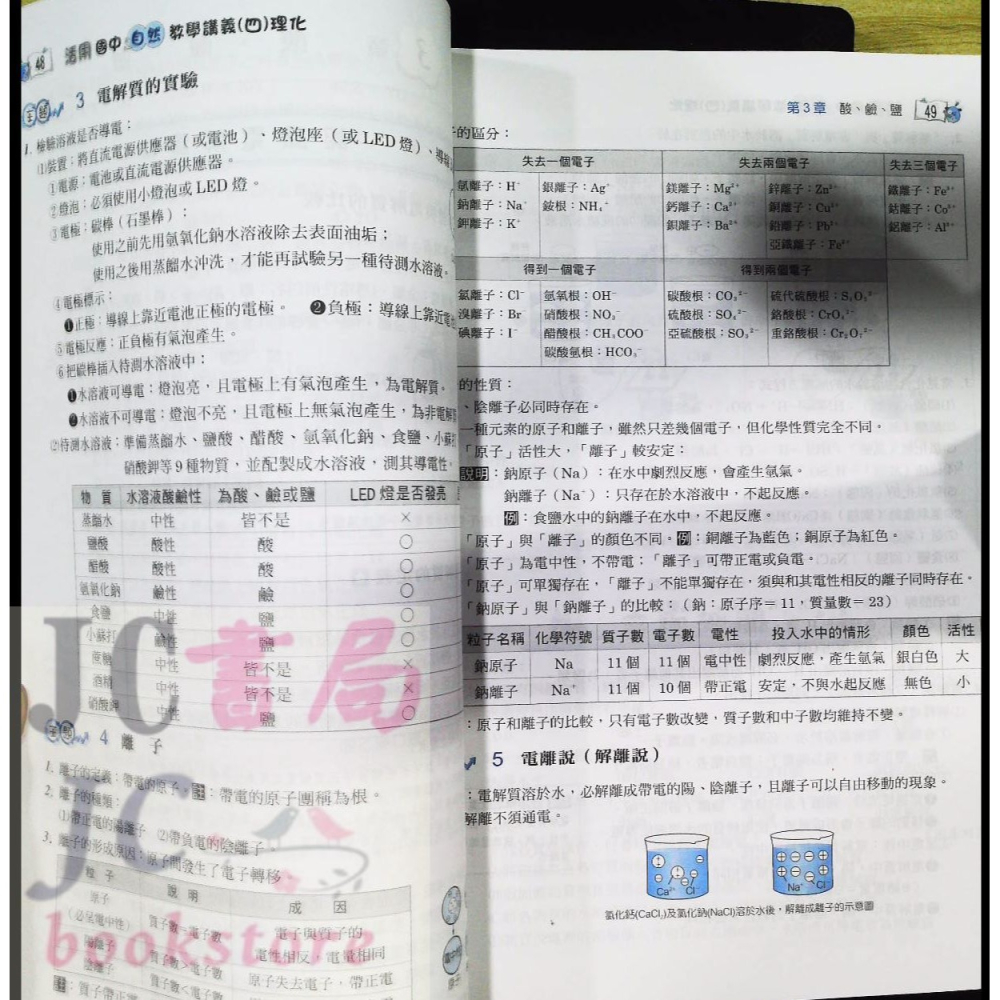 48 活用國中自然教學講義(四)理化
3 電解質的實驗
1. 檢驗溶液是否導電：
⑴裝置：將直流電源供應器（或電池）、燈泡座（或 LED 燈）、導線
①電源：電池或直流電源供應器。
②燈泡：必須使用小燈泡或 LED 燈。
③電極：碳棒（石墨棒）：
使用之前先用氫氧化鈉水溶液除去表面油垢；
使用之後用蒸餾水沖洗，才能再試驗另一種待測水溶液。
④電極標示：
❶正極：導線上靠近電池正極的電極。 ❷負極：導線上靠近電池
⑤電極反應：正負極有氣泡產生。
⑥把碳棒插入待測水溶液中：
❶水溶液可導電：燈泡亮，且電極上有氣泡產生，為電解質。
❷水溶液不可導電：燈泡不亮，且電極上無氣泡產生，為非電解質
⑵待測水溶液：準備蒸餾水、鹽酸、醋酸、氫氧化鈉、食鹽、小蘇打
硝酸鉀等 9 種物質，並配製成水溶液，測其導電性。
物 質 水溶液酸鹼性 為酸、鹼或鹽 LED 燈是否發亮
蒸餾水 中性 皆不是 ×
鹽酸 酸性 酸 ○
醋酸 酸性 酸 ○
氫氧化鈉 鹼性 鹼 ○
食鹽 中性 鹽 ○
小蘇打 鹼性 鹽 ○
蔗糖 中性 皆不是 ×
酒精 中性 皆不是 ×
硝酸鉀 中性 鹽 ○
4 離 子
1. 離子的定義：帶電的原子。註：帶電的原子團稱為根。
2. 離子的種類：
⑴帶正電的陽離子 ⑵帶負電的陰離子
3. 離子的形成原因：原子間發生了電子轉移。
粒 子 說 明 成 因
原子
（必呈電中性） 質子數＝電子數 電子與質子的
電性相反，電量相同
陽離子 質子數＞電子數 原子失去電子，帶正電
陰離子 質子數＜電子數
註：質子帶正電
第 3 章 酸、鹼、鹽 49
子的區分：
失去一個電子 失去兩個電子 失去三個電子
氫離子：H⁺ 銀離子：Ag⁺ 鎂離子：Mg²⁺ 鋅離子：Zn²⁺ 鐵離子：Fe³⁺
鈉離子：Na⁺ 銨根：NH₄⁺ 鈣離子：Ca²⁺ 銅離子：Cu²⁺ 鈷離子：Co³⁺
鉀離子：K⁺ 鋇離子：Ba²⁺ 鉛離子：Pb²⁺ 鋁離子：Al³⁺
亞鐵離子：Fe²⁺
得到一個電子 得到兩個電子
氯離子：Cl⁻ 氫氧根：OH⁻ 碳酸根：CO₃²⁻ 硫代硫酸根：S₂O₃²⁻
溴離子：Br⁻ 硝酸根：NO₃⁻ 硫酸根：SO₄²⁻ 鉻酸根：CrO₄²⁻
碘離子：I⁻ 醋酸根：CH₃COO⁻ 亞硫酸根：SO₃²⁻ 重鉻酸根：Cr₂O₇²⁻
碳酸氫根：HCO₃⁻
的性質：
、陰離子必同時存在。
一種元素的原子和離子，雖然只差幾個電子，但化學性質完全不同。
「原子」活性大，「離子」較安定：
說明：鈉原子（Na）：在水中劇烈反應，會產生氫氣。
鈉離子（Na⁺）：只存在於水溶液中，不起反應。
例：食鹽水中的鈉離子在水中，不起反應。
「原子」與「離子」的顏色不同。例：銅離子為藍色；銅原子為紅色。
「原子」為電中性，不帶電；「離子」可帶正電或負電。
「原子」可單獨存在，「離子」不能單獨存在，須與和其電性相反的離子同時存在。
「鈉原子」與「鈉離子」的比較：（鈉：原子序＝11，質量數＝23）
粒子名稱 化學符號 質子數 電子數 電性 投入水中的情形 顏色 活性
鈉原子 Na 11 個 11 個 電中性 劇烈反應，產生氫氣 銀白色 大
鈉離子 Na⁺ 11 個 10 個 帶正電 安定，不與水起反應 無色 小
：原子和離子的比較，只有電子數改變，質子數和中子數均維持不變。
5 電離說（解離說）
：電解質溶於水，必解離成帶電的陽、陰離子，且離子可以自由移動的現象。
解離不須通電。
Ca²⁺ Cl⁻ Na⁺ Cl⁻
氯化鈣(CaCl₂)及氯化鈉(NaCl)溶於水後，解離成離子的示意圖
JC 書局
JC
bookstore